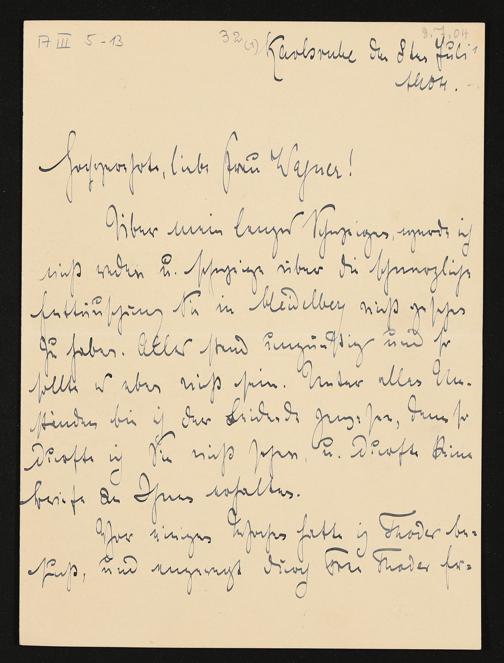 A III 5-13
32 (1)
8.7.04
Karlsruhe den 8ten Juli
1904.
Hochverehrte, liebe Frau Wagner!
Über mein langes Schweigen, werde ich
nicht reden u. schweige über die schmerzliche
Enttäuschung Sie in Heidelberg nicht gesehen
zu haben. Alles stand ungünstig und so
sollte es eben nicht sein. Unter allen Um-
ständen bin ich der Leidende gewesen, denn so
durfte ich Sie nicht sehen, u. durfte keine
Briefe an Ihnen erhalten.
Vor einigen Wochen hatte ich Thoder be-
sucht, und angeregt durch Frau Thoder